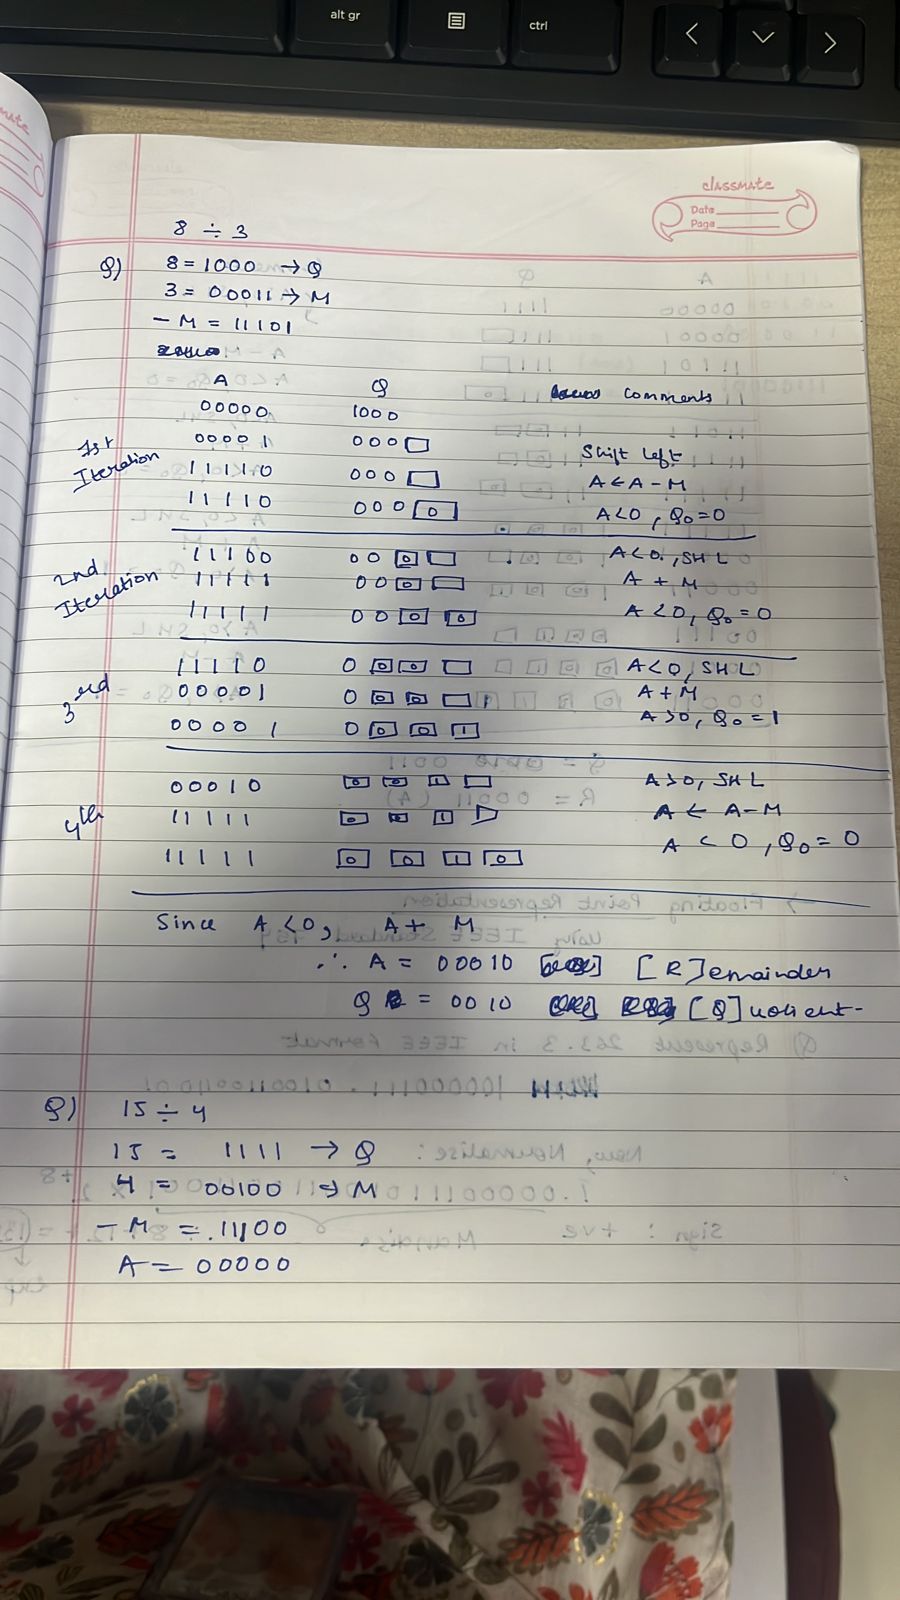 alt gr
ctrl
classmate
Date
Page
8 ÷ 3
Q) 8 = 1000 → Q
3 = 00011 → M
- M = 11101
A Q comments
00000 1000
1st Iteration
00001 000□ Shift left
11110 000□ A ← A - M
11110 000[0] A<0, Q0=0
2nd Iteration
11100 00[0]□ A<0, SHL
11111 00[0]□ A + M
11111 00[0][0] A<0, Q0=0
3rd
11110 0[0][0]□ A<0, SHL
00001 0[0][0]□ A+M
00001 0[0][0][1] A>0, Q0=1
4th
00010 [0][0][1]□ A>0, SHL
11111 [0][0][1]□ A ← A-M
11111 [0][0][1][0] A < 0, Q0 = 0
Since A<0, A + M
∴ A = 00010 [R]emainder
Q = 0010 [Q]uotient
Q) 15 ÷ 4
15 = 1111 → Q
4 = 00100 → M
- M = 11100
A = 00000